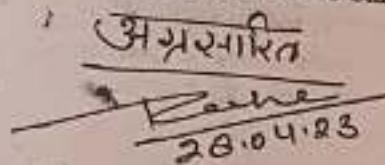 अग्रसारित
28.04.23